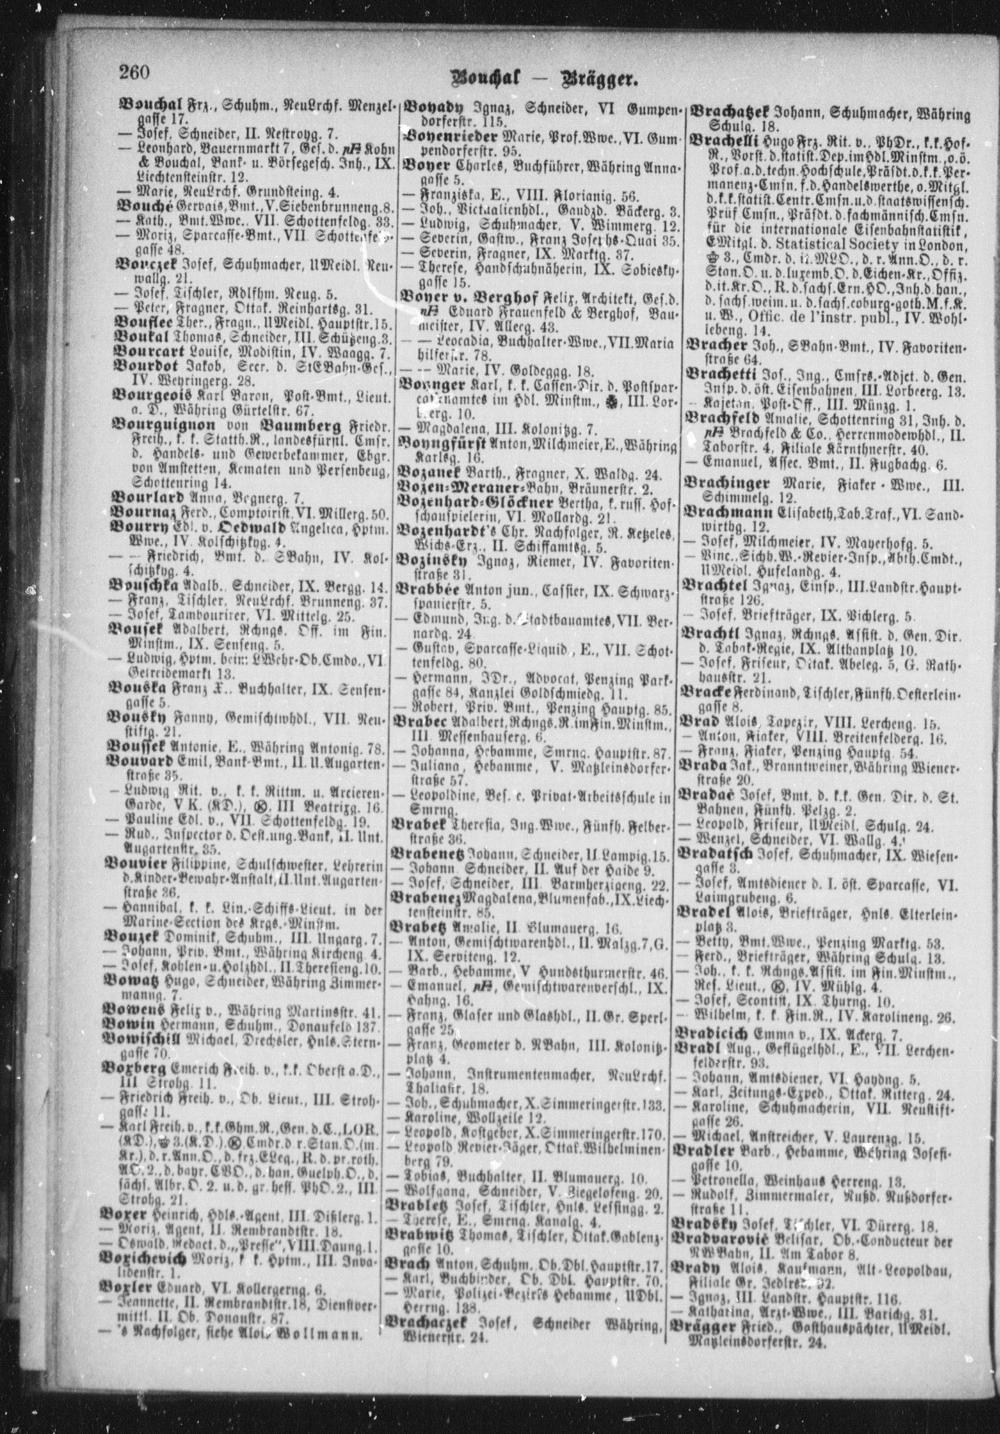 260
Bouchal — Brägger.
Bouchal Frz., Schuhm., NeuLrchf. Menzel-
gasse 17.
— Josef, Schneider, II. Nestroyg. 7.
— Leonhard, Bauernmarkt 7, Ges. d. pff Kohn
& Bouchal, Bank- u. Börsegesch. Inh., IX.
Liechtensteinstr. 12.
— Marie, NeuLrchf. Grundsteing. 4.
Bouché Gervais, Bmt., V. Siebenbrunneng. 8.
— Kath., Bmt. Wwe., VII. Schottenfeldg. 33.
— Moriz, Sparcasse-Bmt., VII.
gasse 48.
Bouczek Josef, Schuhmacher, UMeidl. Neu-
wallg. 21.
— Josef, Tischler, Rdlfhm. Neug. 5.
— Peter, Fragner, Ottak. Reinhartsg. 31.
Bouflee Ther., Fragn., UMeidl. Hauptstr. 15.
Boukal Thomas, Schneider, III. Schützeng. 3.
Bourcart Louise, Modistin, IV. Waagg. 7.
Bourdot Jakob, Secr. d. StEBahn-Ges.,
IV. Weyringerg. 28.
Bourgeois Karl Baron, Post-Bmt., Lieut.
a. D., Währing Gürtelstr. 67.
Bourguignon von Baumberg Friedr.
Freih., k. k. Statth. R., landesfürstl. Cmsr.
d. Handels- und Gewerbekammer, Ehgr.
von Amstetten, Kematen und Persenbeug,
Schottenring 14.
Bourlard Anna, Wegnerg. 7.
Bournaz Ferd., Comptoirist, VI. Millerg. 50.
Bourry Edl. v. Oedwald Angelica, Hptm.
Wwe., IV. Kolschitzkyg. 4.
— — Friedrich, Bmt. d. SBahn, IV. Kol-
schitzkyg. 4.
Bouschka Adalb., Schneider, IX. Bergg. 14.
— Franz, Tischler, NeuLrchf. Brunneng. 37.
— Josef, Tambourirer, VI. Mittelg. 25.
Bousek Adalbert, Rchngs. Off. im Fin.
Minstm., IX. Senseng. 5.
— Ludwig, Hptm. beim LWehr-Ob. Cmdo., VI.
Getreidemarkt 13.
Bouska Franz X., Buchhalter, IX. Sensen-
gasse 5.
Bousky Fanny, Gemischtwhdl., VII. Neu-
stiftg. 21.
Boussek Antonie, E., Währing Antonig. 78.
Bouvard Emil, Bank-Bmt., II. U. Augarten-
straße 35.
— Ludwig Rit. v., k. k. Rittm. u. Arcieren-
Garde, V K. (KD.), III Beatrixg. 16.
— Pauline Edl. v., VII. Schottenfeldg. 19.
— Rud., Inspector d. Oest.ung. Bank, II. Unt.
Augartenstr. 35.
Bouvier Filippine, Schulschwester, Lehrerin
d. Kinder-Bewahr-Anstalt, II. Unt. Augarten-
straße 36.
— Hannibal, k. k. Lin.-Schiffs-Lieut. in der
Marine-Section des Krgs.-Minstm.
Bouzek Dominik, Schuhm., III. Ungarg. 7.
— Johann, Priv. Bmt., Währing Kircheng. 4.
— Josef, Kohlen- u. Holzhdl., II. Theresieng. 10.
Bowatz Hugo, Schneider, Währing Zimmer-
manng. 7.
Bowens Felix v., Währing Martinsstr. 41.
Bowin Hermann, Schuhm., Donaufeld 137.
Bowischill Michael, Drechsler, Hnls. Stern-
gasse 70.
Boxberg Emerich Freih. v., k.k. Oberst a. D.,
III Strohg. 11.
— Friedrich Freih. v., Ob. Lieut., III. Stroh-
gasse 11.
— Karl Freih. v., k.k. Ghm. R., Gen. d. C., LOR.
(KD.), 3. (K.D.), Cmdr. d. r. Stan. O. (m.
Kr.), d. r. Ann. O., d. frz. ELeg., R. d. pr. roth.
AO. 2., d. bayr. CVO., d. han. Guelph. O., d.
sächs. Albr. O. 2. u. d. gr. hess. PhO. 2., III.
Strohg. 21.
Boxer Heinrich, Hdls.-Agent, III. Dißlerg. 1.
— Moriz, Agent, II. Rembrandtstr. 18.
— Oswald, Redact. d. „Presse“, VIII. Daung. 1.
Boxichevich Moriz, k. k. Hptm., III. Inva-
lidenstr. 1.
Boxler Eduard, VI. Kollergerng. 6.
— Jeannette, II. Rembrandtstr. 18, Dienstver-
mittl. II. Ob. Donaustr. 87.
— 's Nachfolger, siehe Alois Wollmann.
Boyady Ignaz, Schneider, VI Gumpen-
dorferstr. 115.
Boyenrieder Marie, Prof. Wwe., VI. Gum-
pendorferstr. 95.
Boyer Charles, Buchführer, Währing Anna-
gasse 5.
— Franziska, E., VIII. Florianig. 56.
— Joh., Victualienhdl., Gaudzd. Bäckerg. 3.
— Ludwig, Schuhmacher, V. Wimmerg. 12.
— Severin, Gastw., Franz Josephs-Quai 35.
— Severin, Fragner, IX. Marktg. 37.
— Therese, Handschuhnäherin, IX. Sobiesky-
gasse 15.
Boyer v. Berghof Felix, Architekt, Ges. d.
pff Eduard Frauenfeld & Berghof, Bau-
meister, IV. Allerg. 43.
— — Leocadia, Buchhalter-Wwe., VII. Maria
hilferstr. 78.
— — Marie, IV. Goldegg. 18.
Boynger Karl, k. k. Cassen-Dir. d. Postspar-
cassenamtes im Hdl. Minstm., III. Lor-
berg. 10.
— Magdalena, III. Kolonitzg. 7.
Boyngfürst Anton, Milchmeier, E., Währing
Karlsg. 16.
Bozanek Barth., Fragner, X. Waldg. 24.
Bozen-Meraner-Bahn, Bräunerstr. 2.
Bozenhard-Glöckner Bertha, k. russ. Hof-
schauspielerin, VI. Mollardg. 21.
Bozenhardt's Chr. Nachfolger, R. Keteles,
Wichs-Erz., II. Schiffamtsg. 5.
Bozinsky Ignaz, Riemer, IV. Favoriten-
straße 31.
Brabbée Anton jun., Cassier, IX. Schwarz-
spanierstr. 5.
— Edmund, Ing. d. Stadtbauamtes, VII. Ber-
nardg. 24.
— Gustav, Sparcasse-Liquid., E., VII. Schot-
tenfeldg. 80.
— Hermann, JDr., Advocat, Penzing Park-
gasse 84, Kanzlei Goldschmiedg. 11.
— Robert, Priv. Bmt., Penzing Hauptg. 85.
Brabec Adalbert, Rchngs. R. im Fin. Minstm.,
III. Messenhauserg. 6.
— Johanna, Hebamme, Smrng. Hauptstr. 87.
— Juliana, Hebamme, V. Matzleinsdorfer-
straße 57.
— Leopoldine, Bes. e. Privat-Arbeitsschule in
Smrng.
Brabek Theresia, Ing. Wwe., Fünfh. Felber-
straße 36.
Brabenetz Johann, Schneider, II Lampig. 15.
— Johann, Schneider, II. Auf der Haide 9.
— Josef, Schneider, III. Barmherzigeng. 22.
Brabenez Magdalena, Blumenfab., IX. Liech-
tensteinstr. 85.
Brabetz Amalie, II. Blumauerg. 16.
— Anton, Gemischtwarenhdl., II. Malzg. 7, G.
IX. Serviteng. 12.
— Barb., Hebamme, V Hundsthurmerstr. 46.
— Emanuel, pff, Gemischtwarenverschl., IX.
Hahng. 16.
— Franz, Glaser und Glashdl., II. Gr. Sperl-
gasse 25.
— Franz, Geometer d. NBahn, III. Kolonitz-
platz 4.
— Johann, Instrumentenmacher, NeuLrchf.
Thaliastr. 18.
— Joh., Schuhmacher, X. Simmeringerstr. 133.
— Karoline, Wollzeile 12.
— Leopold, Kostgeber, X. Simmeringerstr. 170.
— Leopold Revier-Jäger, Ottak. Wilhelminen-
berg 79.
— Tobias, Buchhalter, II. Blumauerg. 10.
— Wolfgang, Schneider, V. Ziegelofeng. 20.
Brabletz Josef, Tischler, Hnls. Lessingg. 2.
— Therese, E., Smrng. Kanalg. 4.
Brabwitz Thomas, Tischler, Ottak. Gablenz-
gasse 10.
Brach Anton, Schuhm. Ob. Dbl. Hauptstr. 17.
— Karl, Buchbinder, Ob. Dbl. Hauptstr. 70.
— Marie, Polizei-Bezirks Hebamme, UDbl.
Herrng. 138.
Brachaczek Josef, Schneider Währing,
Wienerstr. 24.
Brachatzek Johann, Schuhmacher, Währing
Schulg. 18.
Brachelli Hugo Frz. Rit. v., PhDr., k.k. Hof-
R., Vorst. d. statist. Dep. im Hdl. Minstm., o.ö.
Prof. a. d. techn. Hochschule, Präsdt. d. k.k. Per-
manenz-Cmsn. f. d. Handelswerthe, o. Mitgl.
d. k.k. statist. Centr. Cmsn. u. d. staatswissensch.
Prüf Cmsn., Präsdt. d. fachmännisch. Cmsn.
für die internationale Eisenbahnstatistik,
EMitgl. d. Statistical Society in London,
3., Cmdr. d. it. MLO., d. r. Ann. O., d. r.
Stan. O. u. d. luxemb. O. d. Eichen-Kr., Offiz.
d. it. Kr. O., R. d. sachs. Ern. HO., Inh. d. han.,
d. sachs. weim. u. d. sachs. coburg-goth. M. f. K.
u. W., Offic. de l'instr. publ., IV. Wohl-
lebeng. 14.
Bracher Joh., SBahn-Bmt., IV. Favoriten-
straße 64.
Brachetti Jos., Ing., Cmsrs.-Adjet. d. Gen.
Insp. d. öst. Eisenbahnen, III. Lorberrg. 13.
— Kajetan, Post-Off., III. Münzg. 1.
Brachfeld Amalie, Schottenring 31, Inh. d.
pff Brachfeld & Co., Herrenmodewhdl., II.
Taborstr. 4, Filiale Kärnthnerstr. 40.
— Emanuel, Assec. Bmt., II. Fugbachg. 6.
Brachinger Marie, Fiaker-Wwe., III.
Schimmelg. 12.
Brachmann Elisabeth, Tab. Traf., VI. Sand-
wirthg. 12.
— Josef, Milchmeier, IV. Mayerhofg. 5.
— Vinc., Sichh. W.-Revier-Insp., Abth. Cmdt.,
UMeidl. Hufelandg. 4.
Brachtel Ignaz, Einsp., III. Landstr. Haupt-
straße 126.
— Josef, Briefträger, IX. Pichlerg. 5.
Brachtl Ignaz, Rchngs. Assist. d. Gen. Dir.
d. Tabak-Regie, IX. Althanplatz 10.
— Josef, Friseur, Ottak. Abeleg. 5, G. Rath-
hausstr. 21.
Bracke Ferdinand, Tischler, Fünfh. Oesterlein-
gasse 8.
Brad Alois, Tapezir, VIII. Lercheng. 15.
— Anton, Fiaker, VIII. Breitenfelderg. 16.
— Franz, Fiaker, Penzing Hauptg. 54.
Brada Jak., Branntweiner, Währing Wiener-
straße 20.
Bradač Josef, Bmt. d. k.k. Gen. Dir. d. St.
Bahnen, Fünfh. Pelzg. 2.
— Leopold, Friseur, UMeidl. Schulg. 24.
— Wenzel, Schneider, VI. Wallg. 4.
Bradatsch Josef, Schuhmacher, IX. Wiesen-
gasse 3.
— Josef, Amtsdiener d. I. öst. Sparcasse, VI.
Laimgrubeng. 6.
Bradel Alois, Briefträger, Hnls. Elterlein-
platz 3.
— Betty, Bmt. Wwe., Penzing Marktg. 53.
— Ferd., Briefträger, Währing Schulg. 13.
— Joh., k. k. Rchngs. Assist. im Fin. Minstm.,
Res. Lieut., IV. Mühlg. 4.
— Josef, Scontist, IX. Thurng. 10.
— Wilhelm, k. k. Fin. R., IV. Karolineng. 26.
Bradicich Emma v., IX. Ackerg. 7.
Bradl Aug., Geflügelhdl., E., VII. Lerchen-
felderstr. 93.
— Johann, Amtsdiener, VI. Haydng. 5.
— Karl, Zeitungs-Exped., Ottak. Ritterg. 24.
— Karoline, Schuhmacherin, VII. Neustift-
gasse 26.
— Michael, Anstreicher, V. Laurenzg. 15.
Bradler Barb., Hebamme, Währing Josefi-
gasse 10.
— Petronella, Weinhaus Herreng. 13.
— Rudolf, Zimmermaler, Nußd. Nußdorfer-
straße 11.
Bradsky Josef, Tischler, VI. Dürerg. 18.
Bradvarović Belisar, Ob.-Conducteur der
NWBahn, II. Am Tabor 8.
Brady Alois, Kaufmann, Alt-Leopoldau,
Filiale Gr. Jedlrsd. 92.
— Ignaz, III. Landstr. Hauptstr. 116.
— Katharina, Arzt-Wwe., III. Barichg. 31.
Brägger Fried., Gasthauspächter, UMeidl.
Matzleinsdorferstr. 24.